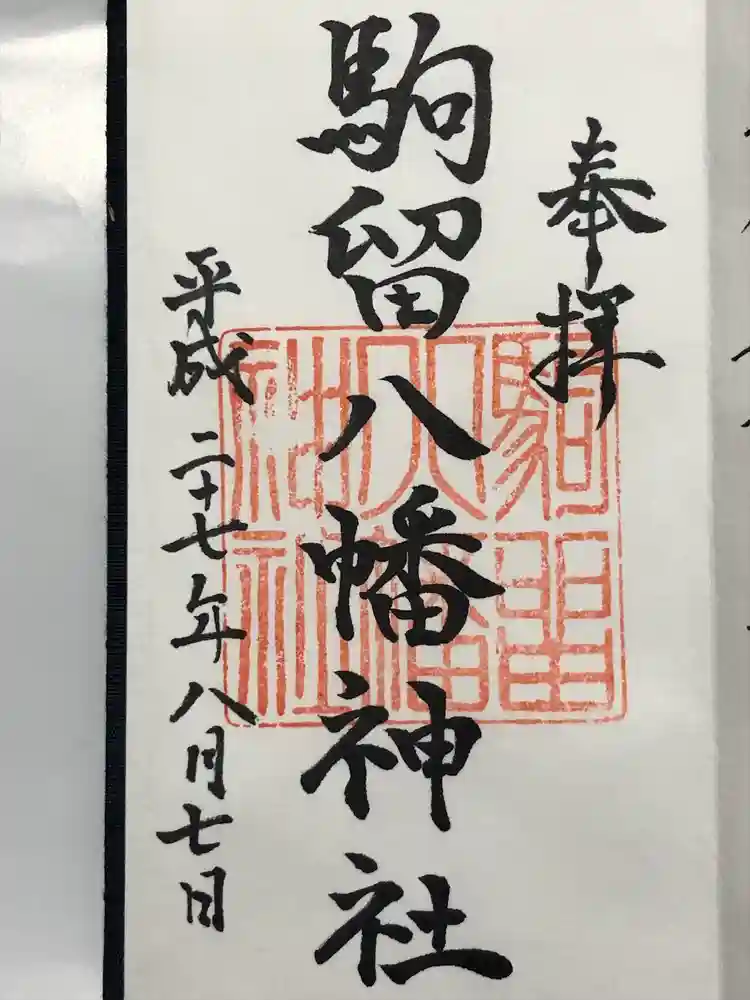 奉拝
駒留八幡神社
平成二十七年八月七日
駒留八幡神社